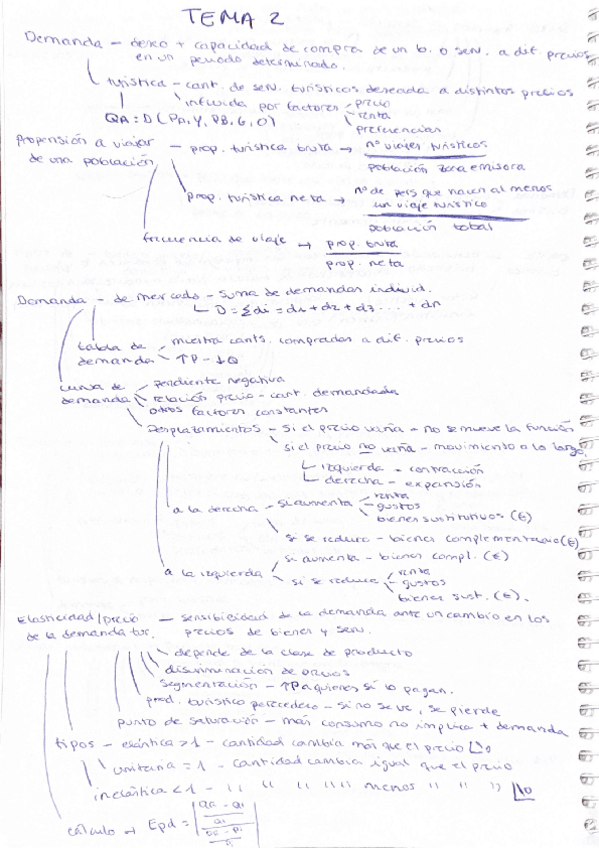 TEMA 2
Demanda - deseo + capacidad de compra de un b. o serv. a dif. precios
en un periodo determinado.
turística - cant. de serv. turísticos deseada a distintos precios
influida por factores - precio
renta
preferencias
QA = D (PA, Y, PB, G, O)
Propensión a viajar - prop. turística bruta → nº viajes turísticos
de una población
población zona emisora
prop. turística neta → nº de pers que hacen al menos
un viaje turístico
población total
frecuencia de viaje → prop. bruta
prop. neta
Demanda - de mercado - suma de demandas individ.
D = Σdi = d1 + d2 + d3 ... + dn
tabla de - muestra cants. compradas a dif. precios
demanda - ↑P - ↓Q
curva de - pendiente negativa
demanda - relación precio - cant. demandada
otros factores constantes
Desplazamientos - si el precio varía - no se mueve la función
si el precio no varía - movimiento a lo largo
izquierda - contracción
derecha - expansión
a la derecha - si aumenta - renta
- gustos
bienes sustitutivos (€)
si se reduce - bienes complementarios (€)
a la izquierda - si aumenta - bienes compl. (€)
si se reduce - renta
- gustos
bienes sust. (€).
Elasticidad/precio - sensibilidad de la demanda ante un cambio en los
de la demanda tur. precios de bienes y serv.
depende de la clase de producto
discriminación de precios
segmentación - ↑P a quienes sí lo pagan.
prod. turístico perecedero - si no se ve, se pierde
punto de saturación - más consumo no implica + demanda
tipos - elástica > 1 - cantidad cambia más que el precio
unitaria = 1 - cantidad cambia igual que el precio
inelástica < 1 - " " " " menos " " "
cálculo → Epd =